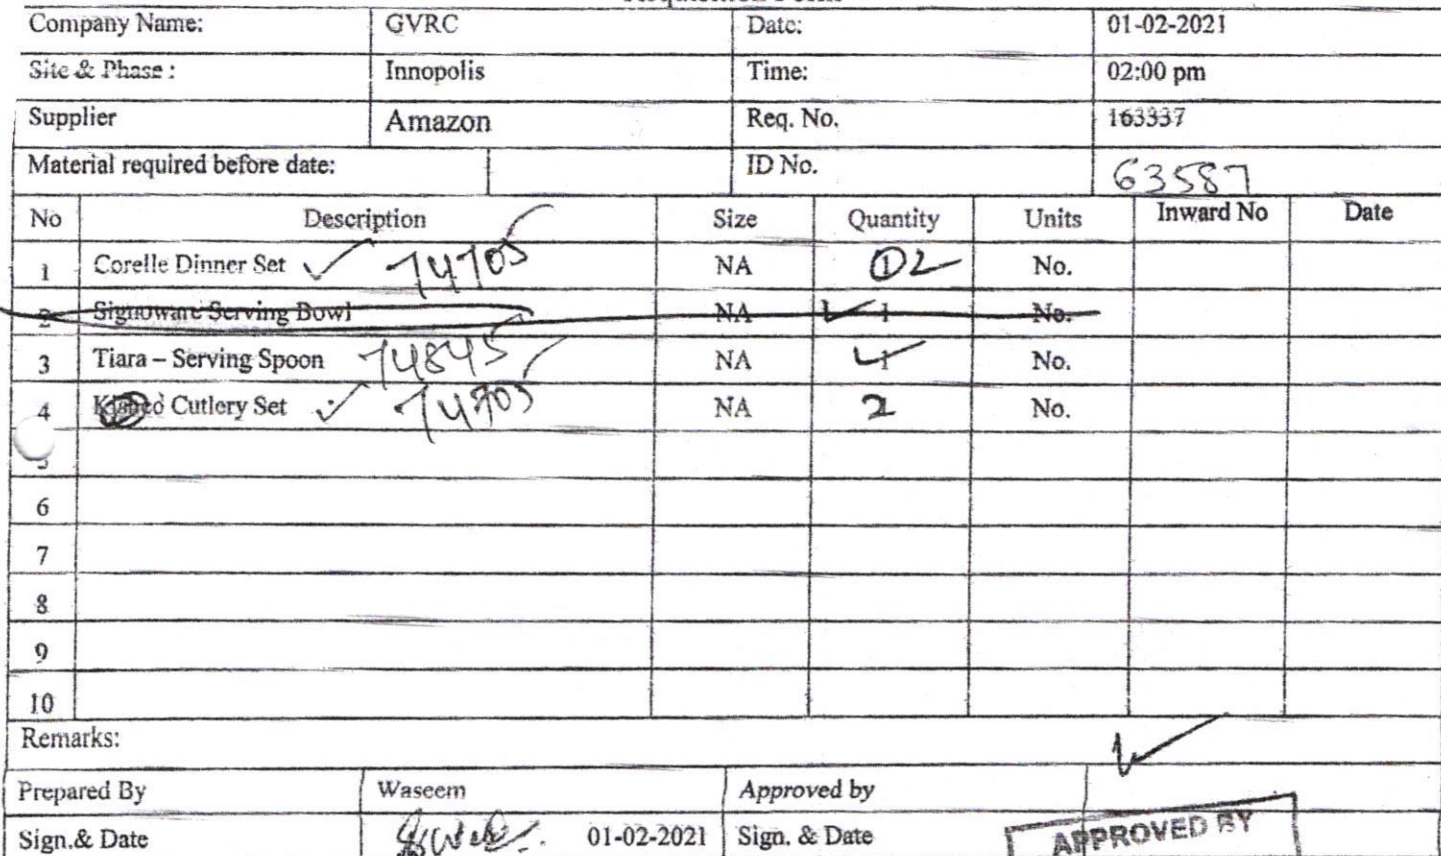 Company Name: GVRC Date: 01-02-2021
Site & Phase : Innopolis Time: 02:00 pm
Supplier Amazon Req. No. 163337
Material required before date: ID No. 63587
No Description Size Quantity Units Inward No Date
1 Corelle Dinner Set 74705 NA 1 2 No.
2 Signoware Serving Bowl NA 1 No.
3 Tiara – Serving Spoon 74845 NA 1 No.
4 Cutlery Set 74703 NA 2 No.
5
6
7
8
9
10
Remarks:
Prepared By Waseem Approved by
Sign.& Date 01-02-2021 Sign. & Date APPROVED BY